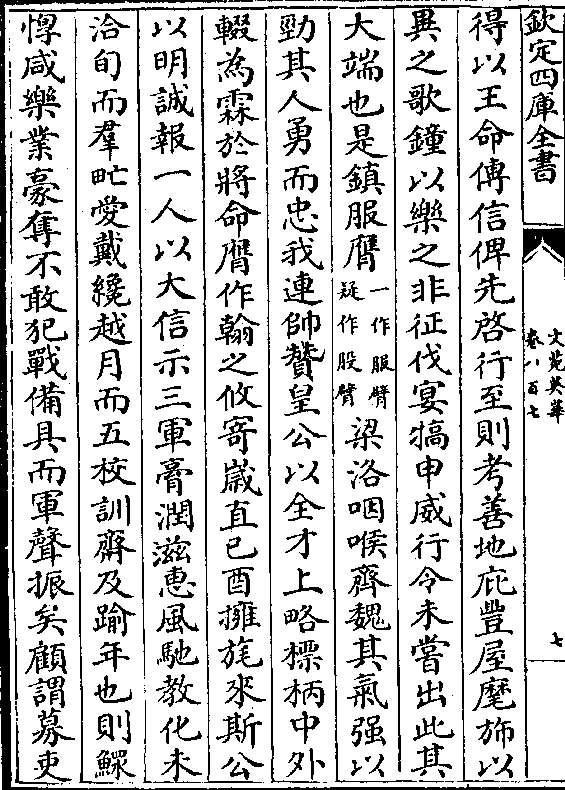 欽定四庫全書
文苑英華
卷八百七
七
得以王命傳信俾先啓行至則考善地庇豐屋麾斾以
異之歌鐘以樂之非征伐宴犒申威行令未嘗出此其
大端也是鎮服膺一作服臂疑作股臂梁洛咽喉齊魏其氣强以
勁其人勇而忠我連帥贊皇公以全才上略摽柄中外
輟為霖於將命膺作翰之攸寄歲直己酉擁旄來斯公
以明誠報一人以大信示三軍膏潤滋惠風馳教化未
洽旬而羣甿愛戴纔越月而五校訓齊及踰年也則鰥
惸咸樂業豪奪不敢犯戰備具而軍聲振矣顧謂募吏